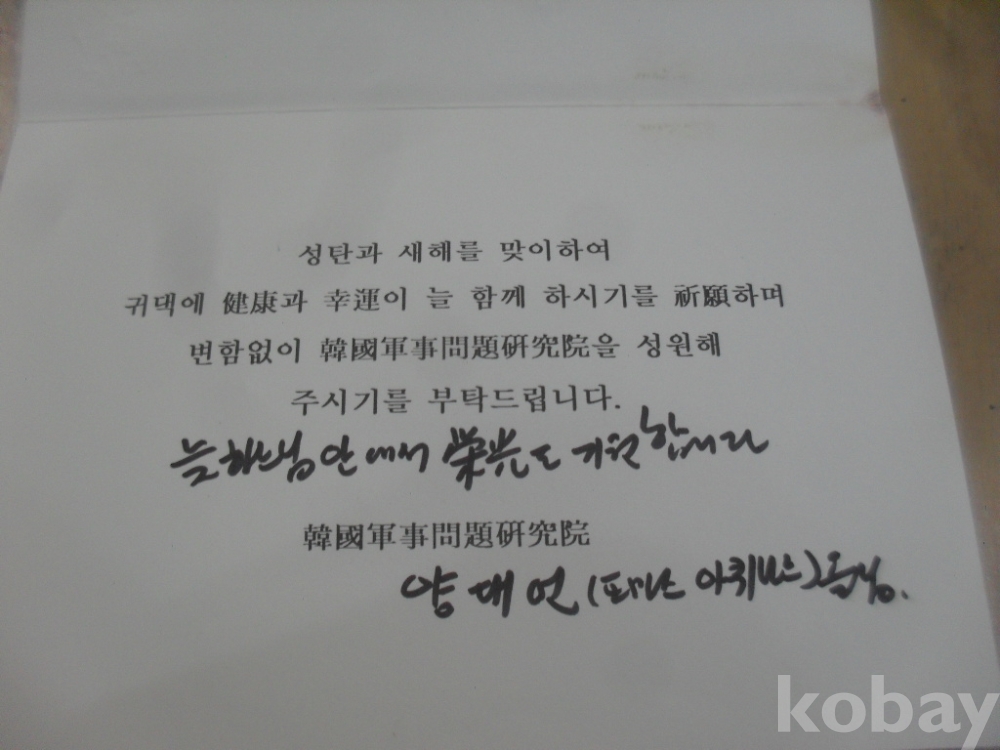 성탄과 새해를 맞이하여
귀댁에 健康과 幸運이 늘 함께 하시기를 祈願하며
변함없이 韓國軍事問題硏究院을 성원해
주시기를 부탁드립니다.
늘 하느님 안에서 榮光도 기원합니다
韓國軍事問題硏究院
양대언 ( 아퀴나스) 드림.
kobay